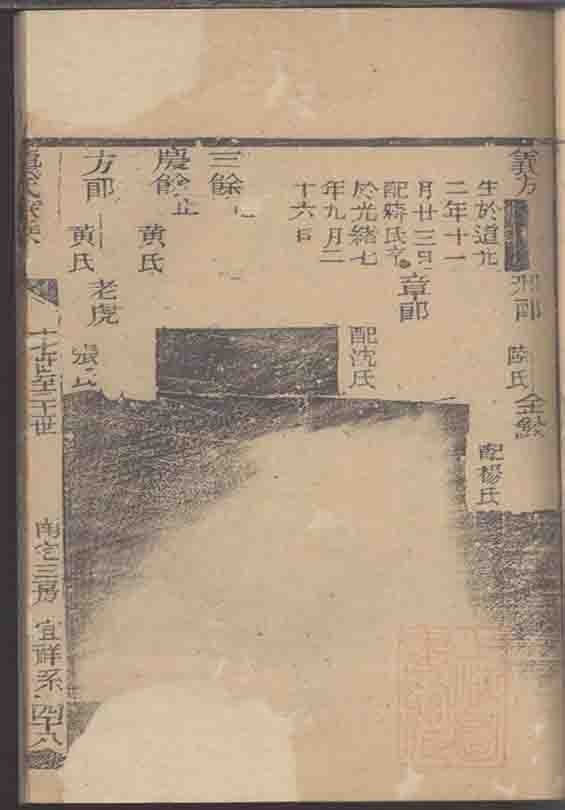 義方
陸氏 金
配楊氏
生於道光
二年十一
月廿三日
配蔣氏卒
於光緒七
年九月二
十六日
章郎
配沈氏
三餘
慶餘
黃氏
方郎
黃氏
老虎
張氏
十七世至二十世
南宅三房 宜祥系 四十八